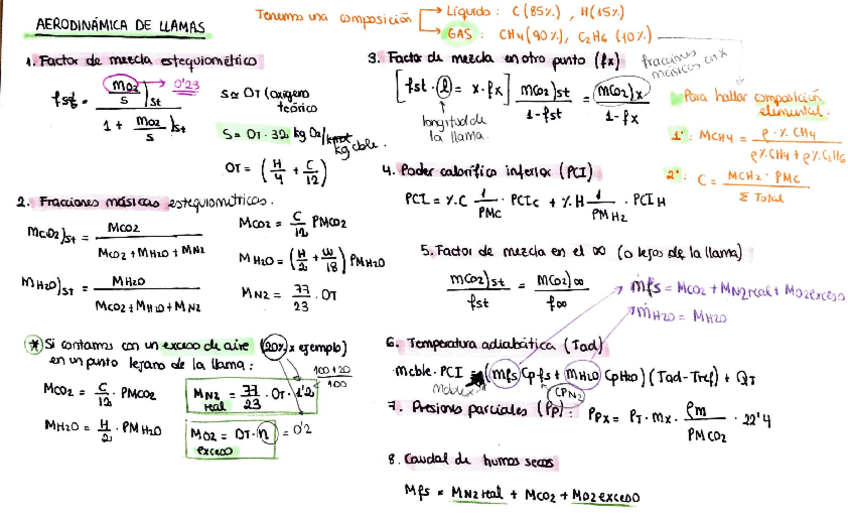 AERODINÁMICA DE LLAMAS
Tenemos una composición
Líquido: C(85%), H(15%)
GAS: CH4(90%), C2H6 (10%)
1. Factor de mezcla estequiométrico
fst = mO2/s)st / 1 + mO2/s)st
0'23
S ≃ OT (oxígeno teórico)
S = OT · 32 kg O2/kg cble.
OT = (H/4 + C/12)
2. Fracciones másicas estequiométricas.
mCO2)st = MCO2 / MCO2 + MH2O + MN2
MCO2 = C/12 PMCO2
mH2O)ST = MH2O / MCO2 + MH2O + MN2
MH2O = (H/2 + W/18) PMH2O
MN2 = 77/23 · OT
* Si contamos con un exceso de aire (20% x ejemplo)
en un punto lejano de la llama:
100+20/100
MCO2 = C/12 · PMCO2
MN2 real = 77/23 · OT · 1'2
MH2O = H/2 · PMH2O
MO2 exceso = OT · n = 0'2
3. Factor de mezcla en otro punto (fx)
fracciones másicas en x
[fst · l = x · fx] mCO2)st / 1-fst = mCO2)x / 1-fx
longitud de la llama.
Para hallar composición elemental.
1º: MCH4 = ρ · % CH4 / ρ%CH4 + ρ%C2H6
2º: C = MCH2 · PMC / Σ Total
4. Poder calorífico inferior (PCI)
PCI = %C 1/PMC · PCIC + %H 1/PMH2 · PCIH
5. Factor de mezcla en el ∞ (o lejos de la llama)
mCO2)st / fst = mCO2)∞ / f∞
ṁfs = MCO2 + MN2real + MO2exceso
ṁH2O = MH2O
6. Temperatura adiabática (Tad)
mcble · PCI = (mfs Cpfs + mH2O CpH2O)(Tad - Tref) + QT
CPN2
7. Presiones parciales (Pp): PPX = PT · mx · ρm / PMCO2 · 22'4
8. Caudal de humos secos
Mfs = MN2real + MCO2 + MO2exceso